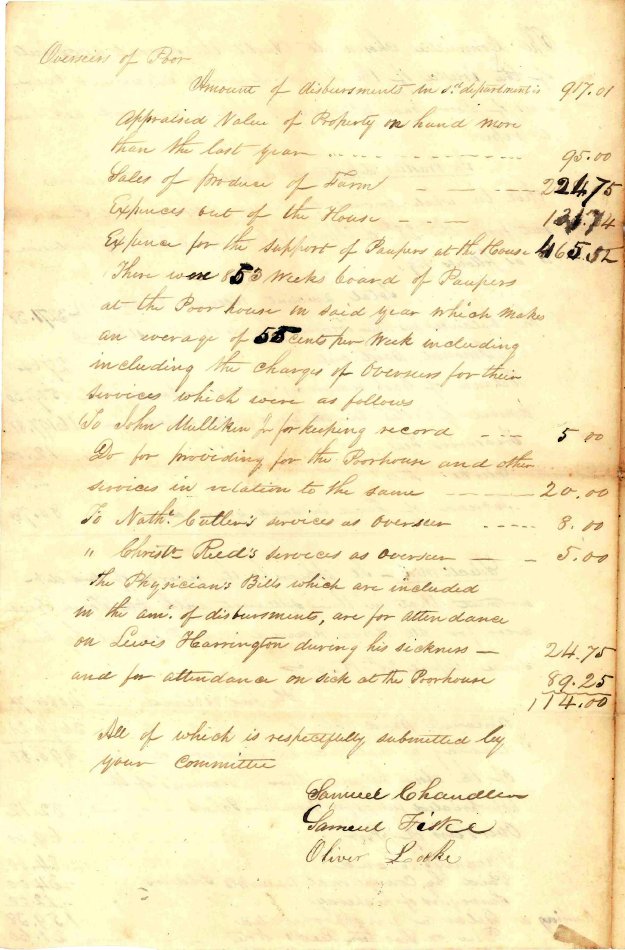 Overseers of Poor
Amount of disbursments in sd. department is 917.01
Appraised Value of Property on hand more
than the last year 95.00
Sales of produce of Farm 224.75
Expences out of the House 131.74
Expence for the support of Paupers at the House 465.52
There were 853 Weeks board of Paupers
at the Poor house in said year which makes
an average of 55 cents per Week including
including the charges of Overseers for their
services which were as follows
To John Mulliken Jr for keeping record 5.00
Do for providing for the Poorhouse and other
services in relation to the same 20.00
To Nathl. Cutler's services as Overseer 8.00
" Christr. Reed's services as overseer 5.00
The Physician's Bills which are included
in the amt. of disbursments, are for attendance
on Lewis Harrington during his sickness 24.75
and for attendance on sick at the Poorhouse 89.25
114.00
All of which is respectfully submitted by
your committee
Samuel Chandler
Samuel Fiske
Oliver Locke